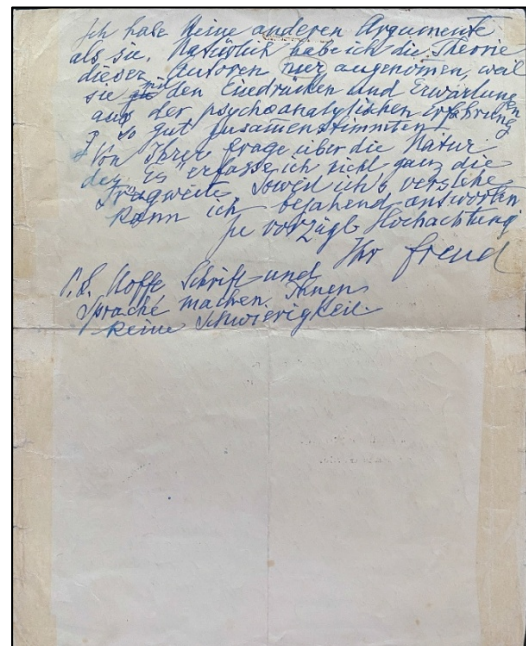 Ich habe keine anderen Argumente
als sie. Natürlich habe ich die Theorie
dieser Autoren nur angenommen, weil
sie mit den Eindrücken und Erwartungen
aus der psychoanalytischen Erfahrung
so gut zusammenstimmten.
Von Ihrer Frage über die Natur
des Es erfasse ich nicht ganz die
Tragweite. Soweit ich's verstehe
kann ich bejahend antworten
In vorzügl Hochachtung
Ihr Freud
P.S. Hoffe Schrift und
Sprache machen Ihnen
keine Schwierigkeit.